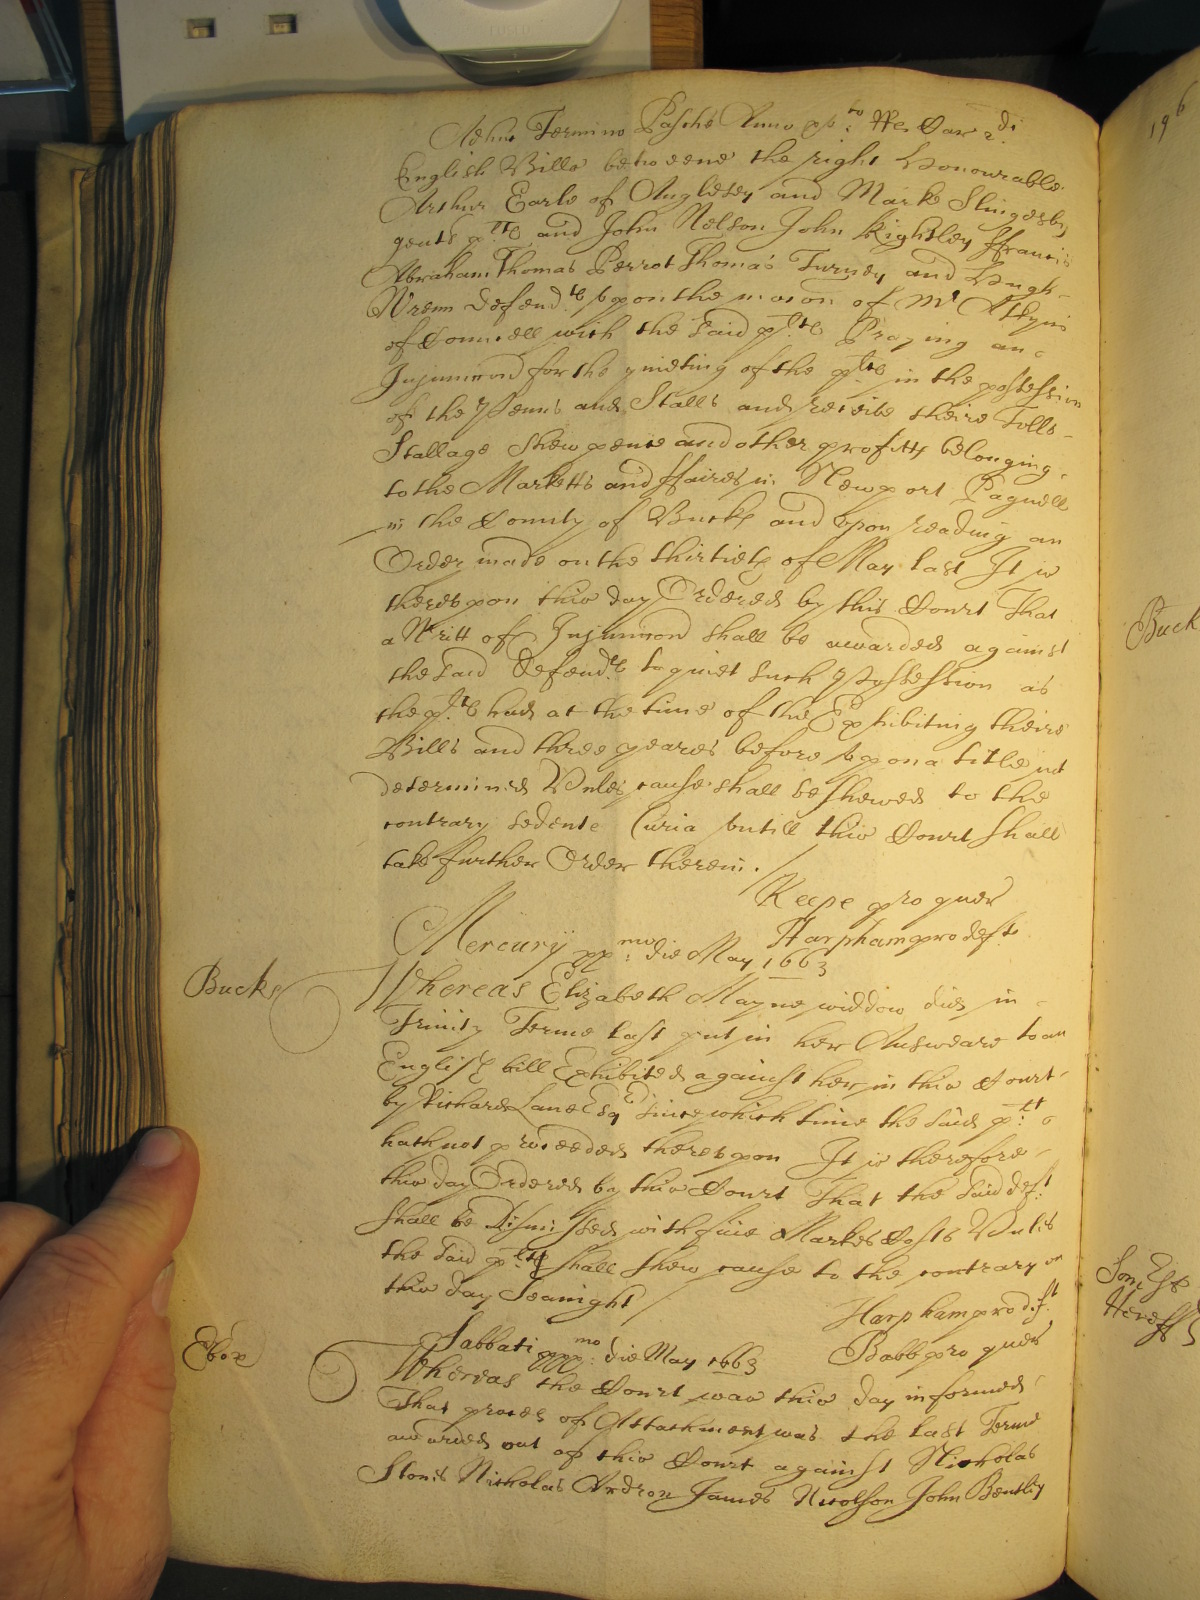 Adhuc Termino Pasche Anno xv:to Rs Car 2:di
English Bills betweene the right Honourable
Arthur Earle of Anglesey and Marke Slingesby
gents p:lts and John Nelson John Kightley ffrancis
Abraham Thomas Perrot Thomas Turney and Hugh
Wrenn Defend:ts upon the mocon of Mr Atkyns
of Councell with the said p:lts Praying an
Injunccon for the quieting of the p:lts in the possession
of the Penns and Stalls and receive theire Tolls
Stallage Shewpence and other profitts belonging
to the Marketts and ffaires in Newport Pagnell
in the County of Bucks and upon reading an
Order made on the thirtieth of May last It is
thereupon this day Ordered by this Court That
a Writt of Injunccon shall be awarded against
the said Defend:ts to quiet such Possession as
the p:lts had at the time of the Exhibiting theire
Bills and three yeares before upon a title not
determined Unles cause shall be shewed to the
contrary sedente Curia untill this Court shall
take further Order therein.
Keepe pro quer
Harpham pro deft
Mercurij xx:mo die May 1663
Bucks
Whereas Elizabeth Mayne widdow did in
Trinity Terme last put in her Answeare to an
English bill Exhibited against her in this Court
by Richard Lane Esq since which time the said p:lt
hath not proceeded thereupon It is therefore
this day Ordered by this Court That the said def:t
shall be Dismissed with five Markes Costs Unles
the said p:lt shall shew cause to the contrary on
this day Seanight
Harpham pro def:t
Babb pro quer
Sabbati xxx:mo die May 1663
Ebor
Whereas the Court was this day informed
That proces of Attachment was the last Terme
awarded out of this Court against Nicholas
Stonis Nicholas Ardron James Nicolson John Bentley
196
Buck
Som
Heref